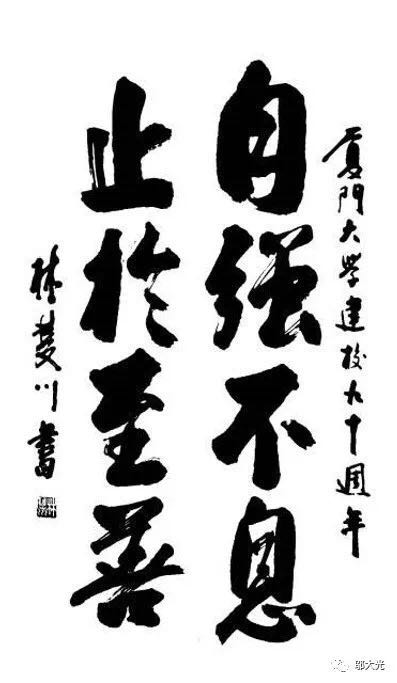 厦門大學建校九十週年
自強不息
止於至善
川書
邬大光